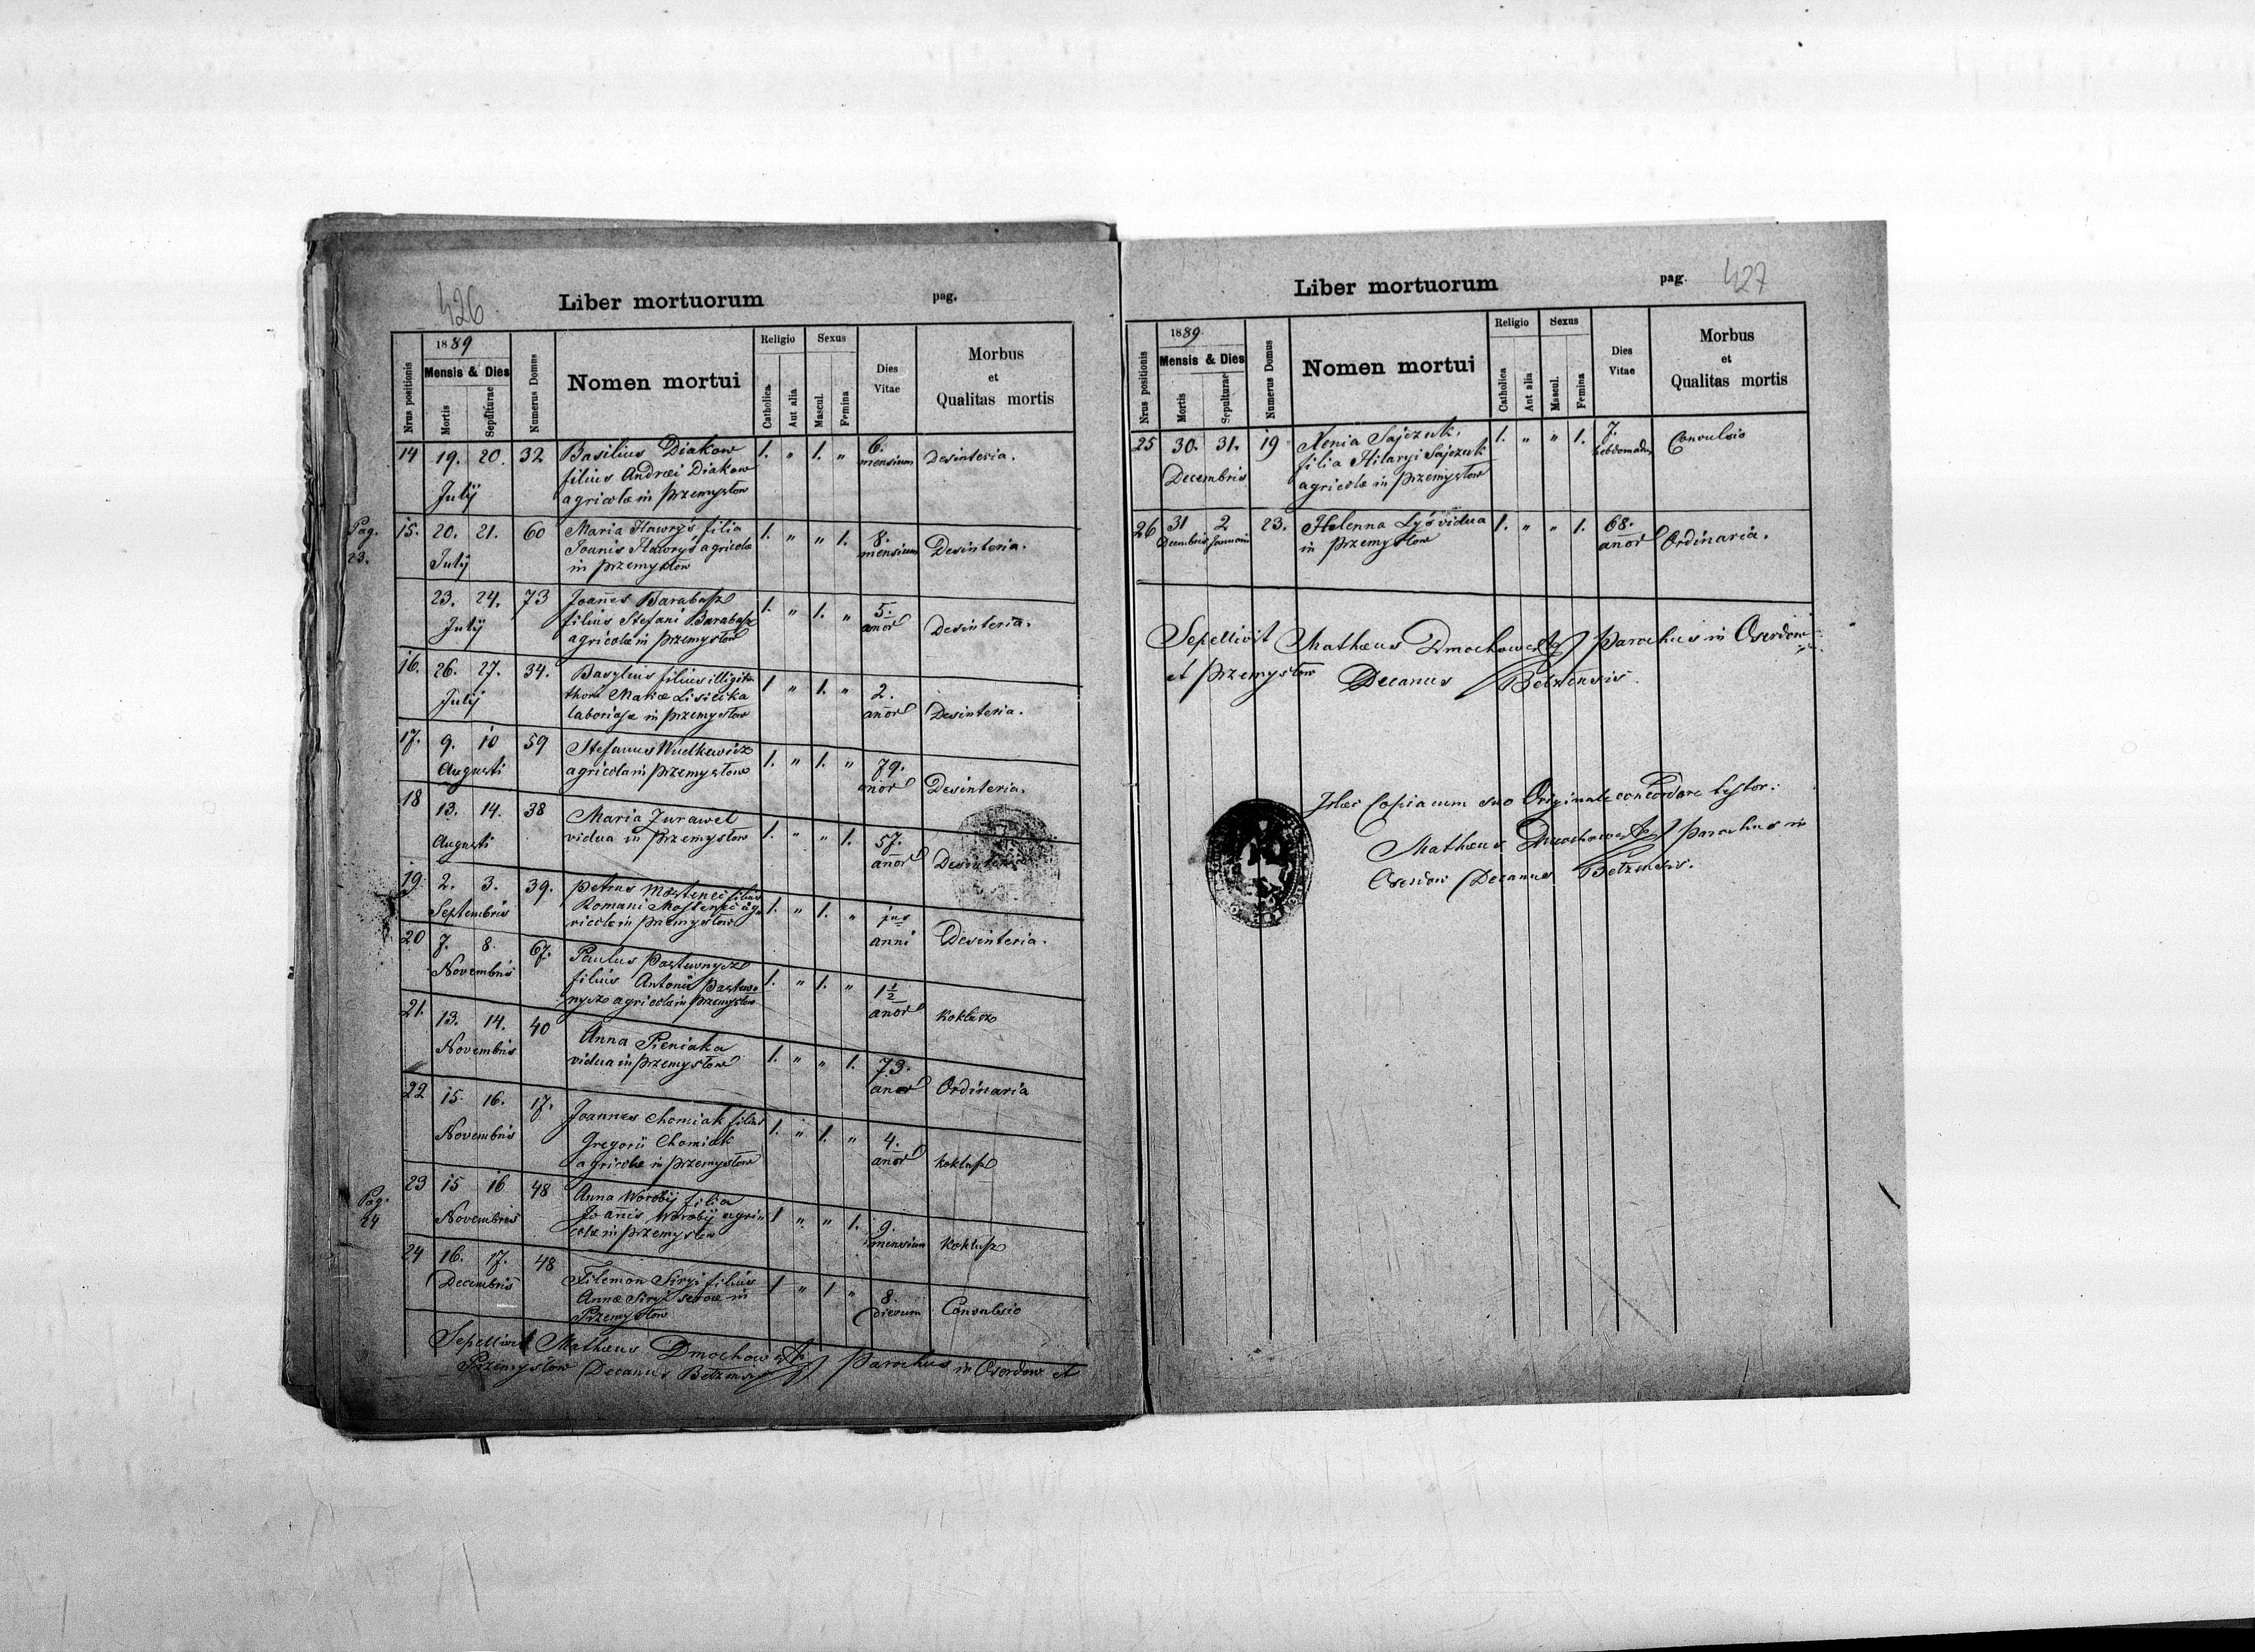 426
Liber mortuorum
pag.
Nrus positionis
1889
Mensis & Dies
Mortis
Sepulturae
Numerus Domus
Nomen mortui
Religio
Catholica
Aut alia
Sexus
Mascul.
Femina
Dies
Vitae
Morbus
et
Qualitas mortis
14 19. 20. 32 Basilius Diakow 1. " 1. " 6.
July filius Andrei Diakow mensium Desinteria.
agricolæ in Przemysłow
Pag. 23.
15. 20. 21. 60 Maria Hawryś filia 1. " " 1. 8.
July Joanis Hawryś agricolæ mensium Desinteria.
in Przemysłow
23. 24. 73 Joannes Barabasz 1. " 1. " 5.
July filius Stefani Barabasz anor Desinteria.
agricolæ in Przemysłow
16. 26. 27. 34. Basylius filius illigit. 1 " 1. " 2.
July thori Mariæ Lisiecka anor Desinteria.
in Przemysłow
17. 9. 10 59 Stefanus 1. " 1. " 79.
Augusti agricola in Przemysłow anor Desinteria.
18 13. 14. 38 Maria Zurawel 1. " " 1. 57.
Augusti vidua in Przemysłow anor Desinteria
19. 2. 3. 39. Petrus filius 1. " 1. "
Septembris Romani ag- anni Desinteria.
ricolæ in Przemysłow
20 7. 8. 67. Paulus 1. " 1. " 1 1/2
Novembris filius Antonii anor Koklusz
agricolæ in Przemysłow
21. 13. 14. 40 Anna Pieniaka 1. " " 1. 73.
Novembris vidua in Przemysłow anor Ordinaria
22 15. 16. 17. Joannes Chomiak filius 1. " 1. " 4.
Novembris Gregorii Chomiak anor Koklusz
agricolæ in Przemysłow
Pag. 24
23 15 16 48 Anna Worobij filia 1 " " 1. 9.
Novembris Joannis Worobij agri- mensium Koklusz
colæ in Przemysłow
24 16. 17. 48 Filemon Siryj filius 1 " 1 " 8.
Decembris Annæ Siryj servæ in dierum Convulsio
Przemysłow
Sepelivit Mathæus Dmochowski Parochus in Oserdow et
Przemysłow Decanus Bełzensis
Liber mortuorum
pag. 427
Nrus positionis
1889.
Mensis & Dies
Mortis
Sepulturae
Numerus Domus
Nomen mortui
Religio
Catholica
Aut alia
Sexus
Mascul.
Femina
Dies
Vitae
Morbus
et
Qualitas mortis
25 30. 31. 19 Xenia Sajczuk, 1. " " 1. 7.
Decembris filia Hilaryi Sajczuk Convulsio
agricolæ in Przemysłow
26 31 2 23. Helenna Lyś vidua 1. " " 1. 68.
Decembris Januarii in Przemysłow anor Ordinaria.
Sepelivit Mathæus Dmochowski Parochus in Oserdow
et Przemysłow Decanus Bełzensis.
Hæc Copia cum suo Originale concordare testor:
Mathæus Dmochowski Parochus in
Oserdow Decanus Bełzensis.